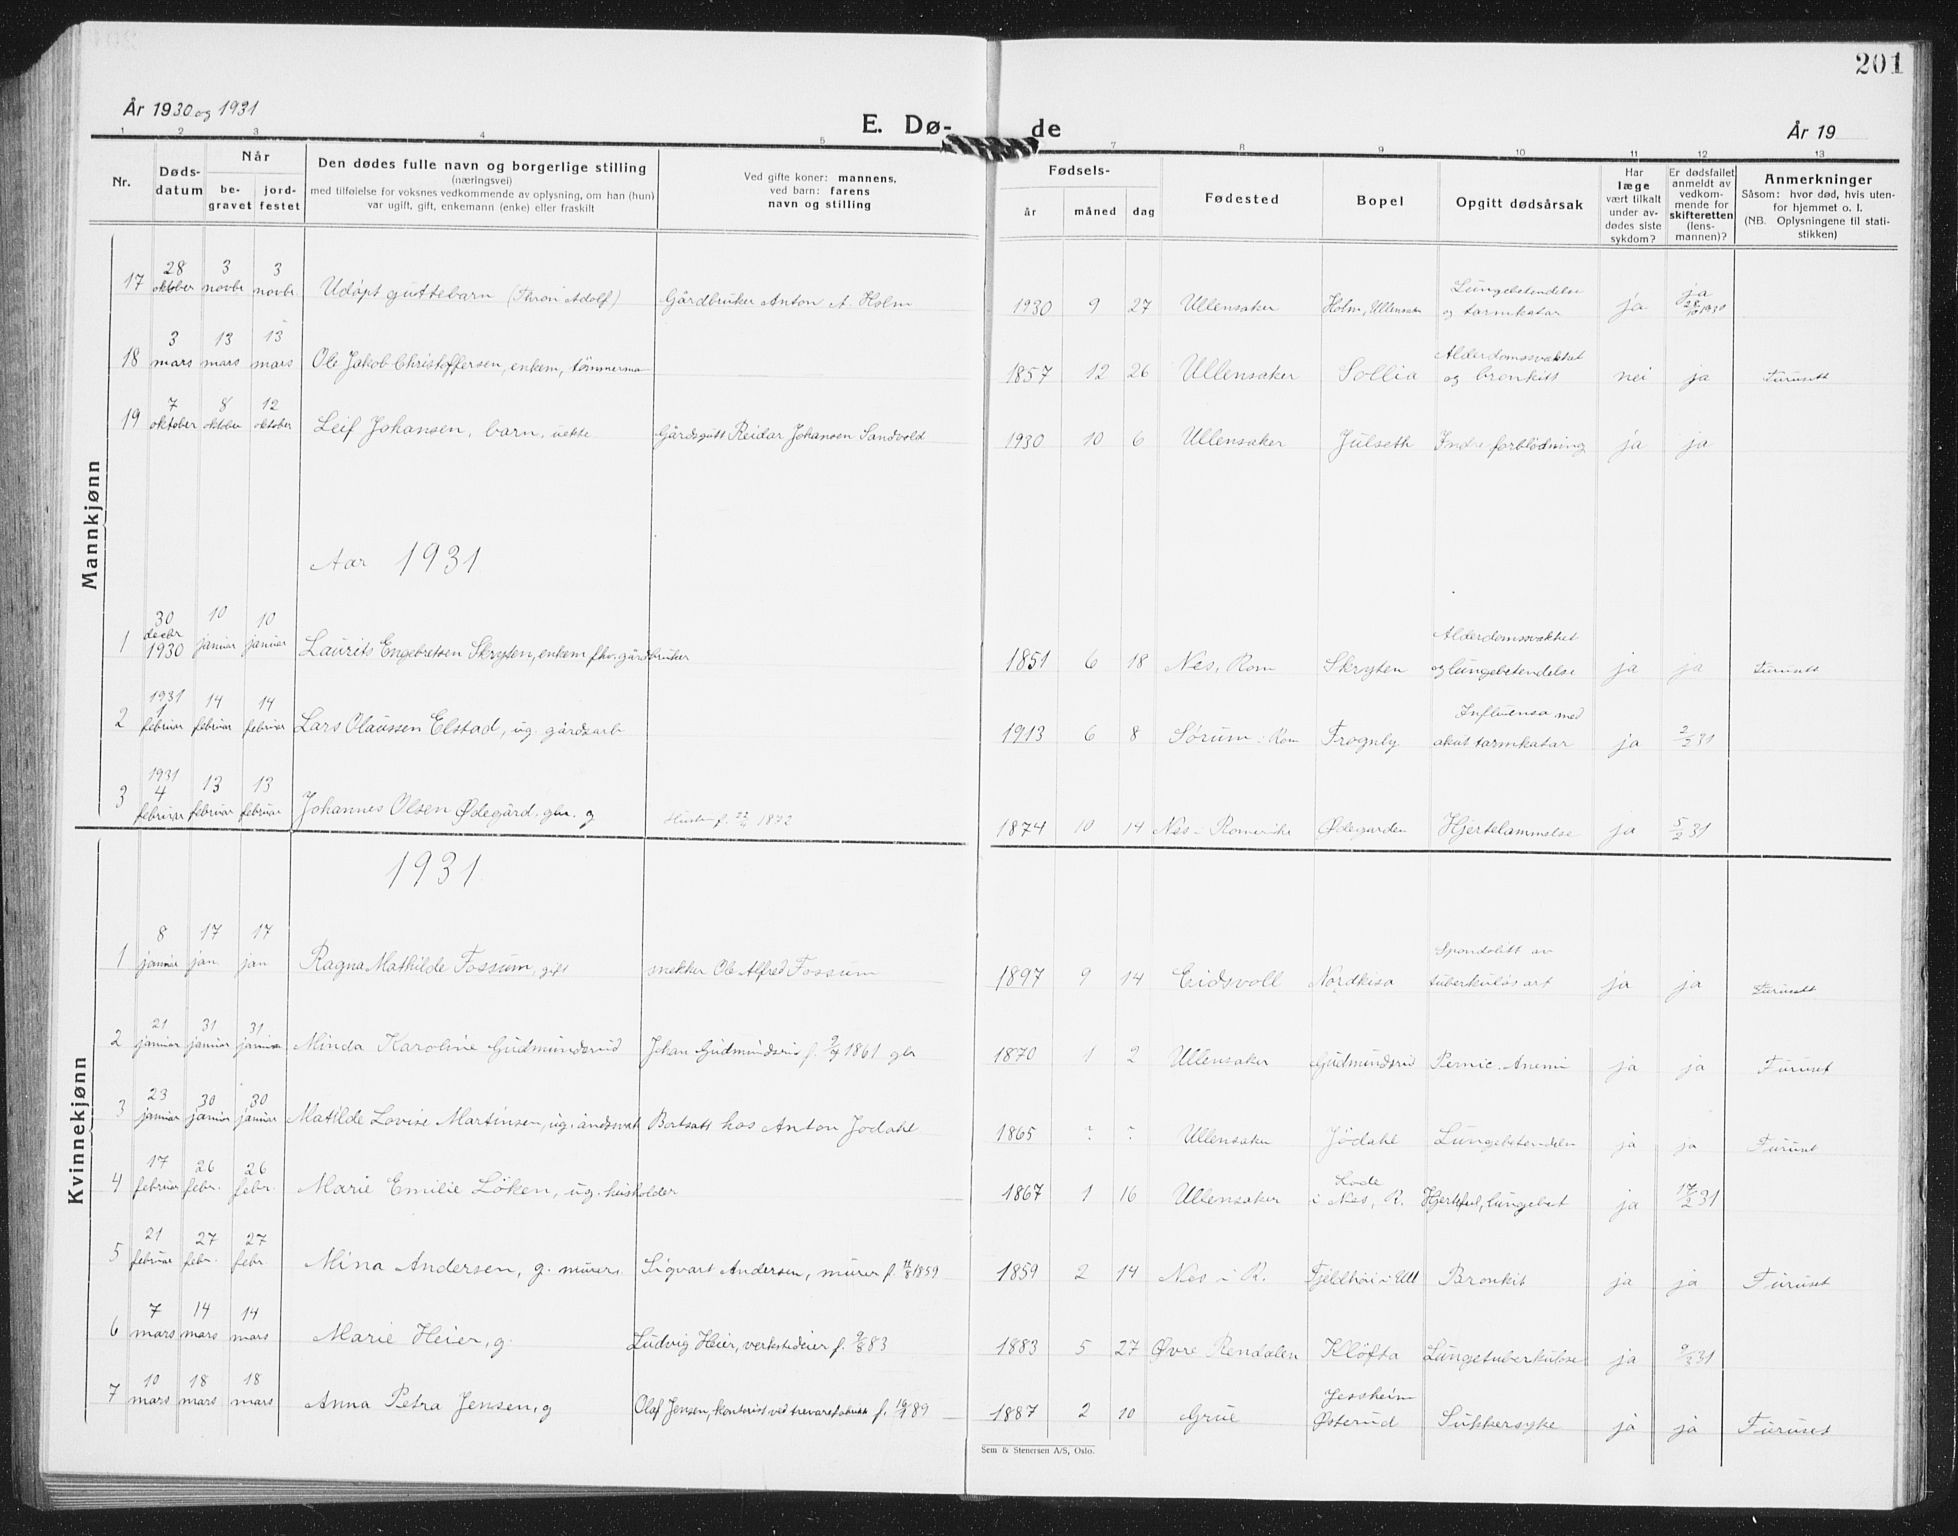 201
År 1930 og 1931
E. Dø-
de
År 19
1 2 3 4 5 7 8 9 10 11 12 13
Nr.
Døds-
datum
Når
be-
gravet
jord-
festet
Den dødes fulle navn og borgerlige stilling
(næringsvei)
med tilføielse for voksnes vedkommende av oplysning, om han (hun)
var ugift, gift, enkemann (enke) eller fraskilt
Ved gifte koner: mannens,
ved barn: farens
navn og stilling
Fødsels-
år
måned
dag
Fødested
Bopel
Opgitt dødsårsak
Har
læge
vært tilkalt
under av-
dødes siste
sykdom?
Er dødsfallet
anmeldt av
vedkom-
mende for
skifteretten
(lens-
mannen)?
Anmerkninger
Såsom: hvor død, hvis uten-
for hjemmet o. l.
(NB. Oplysningene til stati-
stikken)
Mannkjønn
17 28 oktober 3 novbr 3 novbr. Udøpt guttebarn (Thron Adolf) Gårdbruker Anton A. Holm 1930 9 27 Ullensaker Holm, Ullensaker Lungebetendelse og tarmkatar ja ja 28/10 1930
18 3 mars 13 mars 13 mars Ole Jakob Christoffersen, enkem, tömmerma 1857 12 26 Ullensaker Sollia Alderdomssvakhet og bronkitt nei ja Furusett
19 7 oktober 8 oktober 12 oktober Leif Johansen, barn, uekte Gårdsgutt Reidar Johansen Sandvold 1930 10 6 Ullensaker Julseth Indre forblödning ja ja
Aar 1931
1 30 decbr 1930 10 januar 10 januar Laurits Engebretsen Skryten, enkem fhv. gårdbruker 1851 6 18 Nes, Rom Skryten Alderdomssvakhet og lungebetendelse ja ja Furusett
2 1931 1 februar 14 februar 14 februar Lars Olaussen Elstad, ug. gårdsarb 1913 6 8 Sörum i Rom Frogneby Influensa med akut tarmkatar ja 2/2 31
3 1931 4 februar 13 februar 13 februar Johannes Olsen Ødegård, gbr. g Hustru f. 22/4 1872 1874 10 14 Nes i Romerike Ødegarden Hjertelammelse ja 5/2 31
Kvinnekjønn
1931
1 8 januar 17 jan. 17 jan Ragna Mathilde Fossum, gift snekker Ole Alfred Fossum 1897 9 14 Eidsvoll Nordkisa Spondolitt av tuberkuløs art ja ja Furusett
2 21 januar 31 januar 31 januar Minda Karoline Gudmundsrud Johan Gudmundsrud f. 1861 gbr 1870 1 2 Ullensaker Gudmundsrud Pernic. Anemi ja ja Furuset
3 23 januar 30 januar 30 januar Matilde Lovise Martinsen, ug. Bortsatt hos Anton Jödahl 1865 ? ? Ullensaker Jödahl Lungebetendelse ja ja Furuset
4 17 februar 26 febr. 26 febr. Marie Emilie Löken, ug. husholder 1867 1 16 Ullensaker i Nes, R. Hjertefeil, lungebet ja 17/2 31
5 21 februar 27 febr. 27 febr. Mina Andersen, g. murers Sigvart Andersen, murer f. 1859 1859 2 14 Nes i R. Fjeldhöi i Ull Bronkit ja ja Furuset
6 7 mars 14 mars 14 mars Marie Heier, g. Ludvig Heier, verkstedeier f. 9/8 83 1883 5 27 Øvre Rendalen Kløfta Lungetuberkulose ja 9/3 31
7 10 mars 18 mars 18 mars Anna Petra Jensen, g Olaf Jensen, kontorist ved trevarefabrikk f. 89 1887 2 10 Grue Jessheim Østerud Sukkersyke ja ja Furuset
Sem & Stenersen A/S, Oslo.